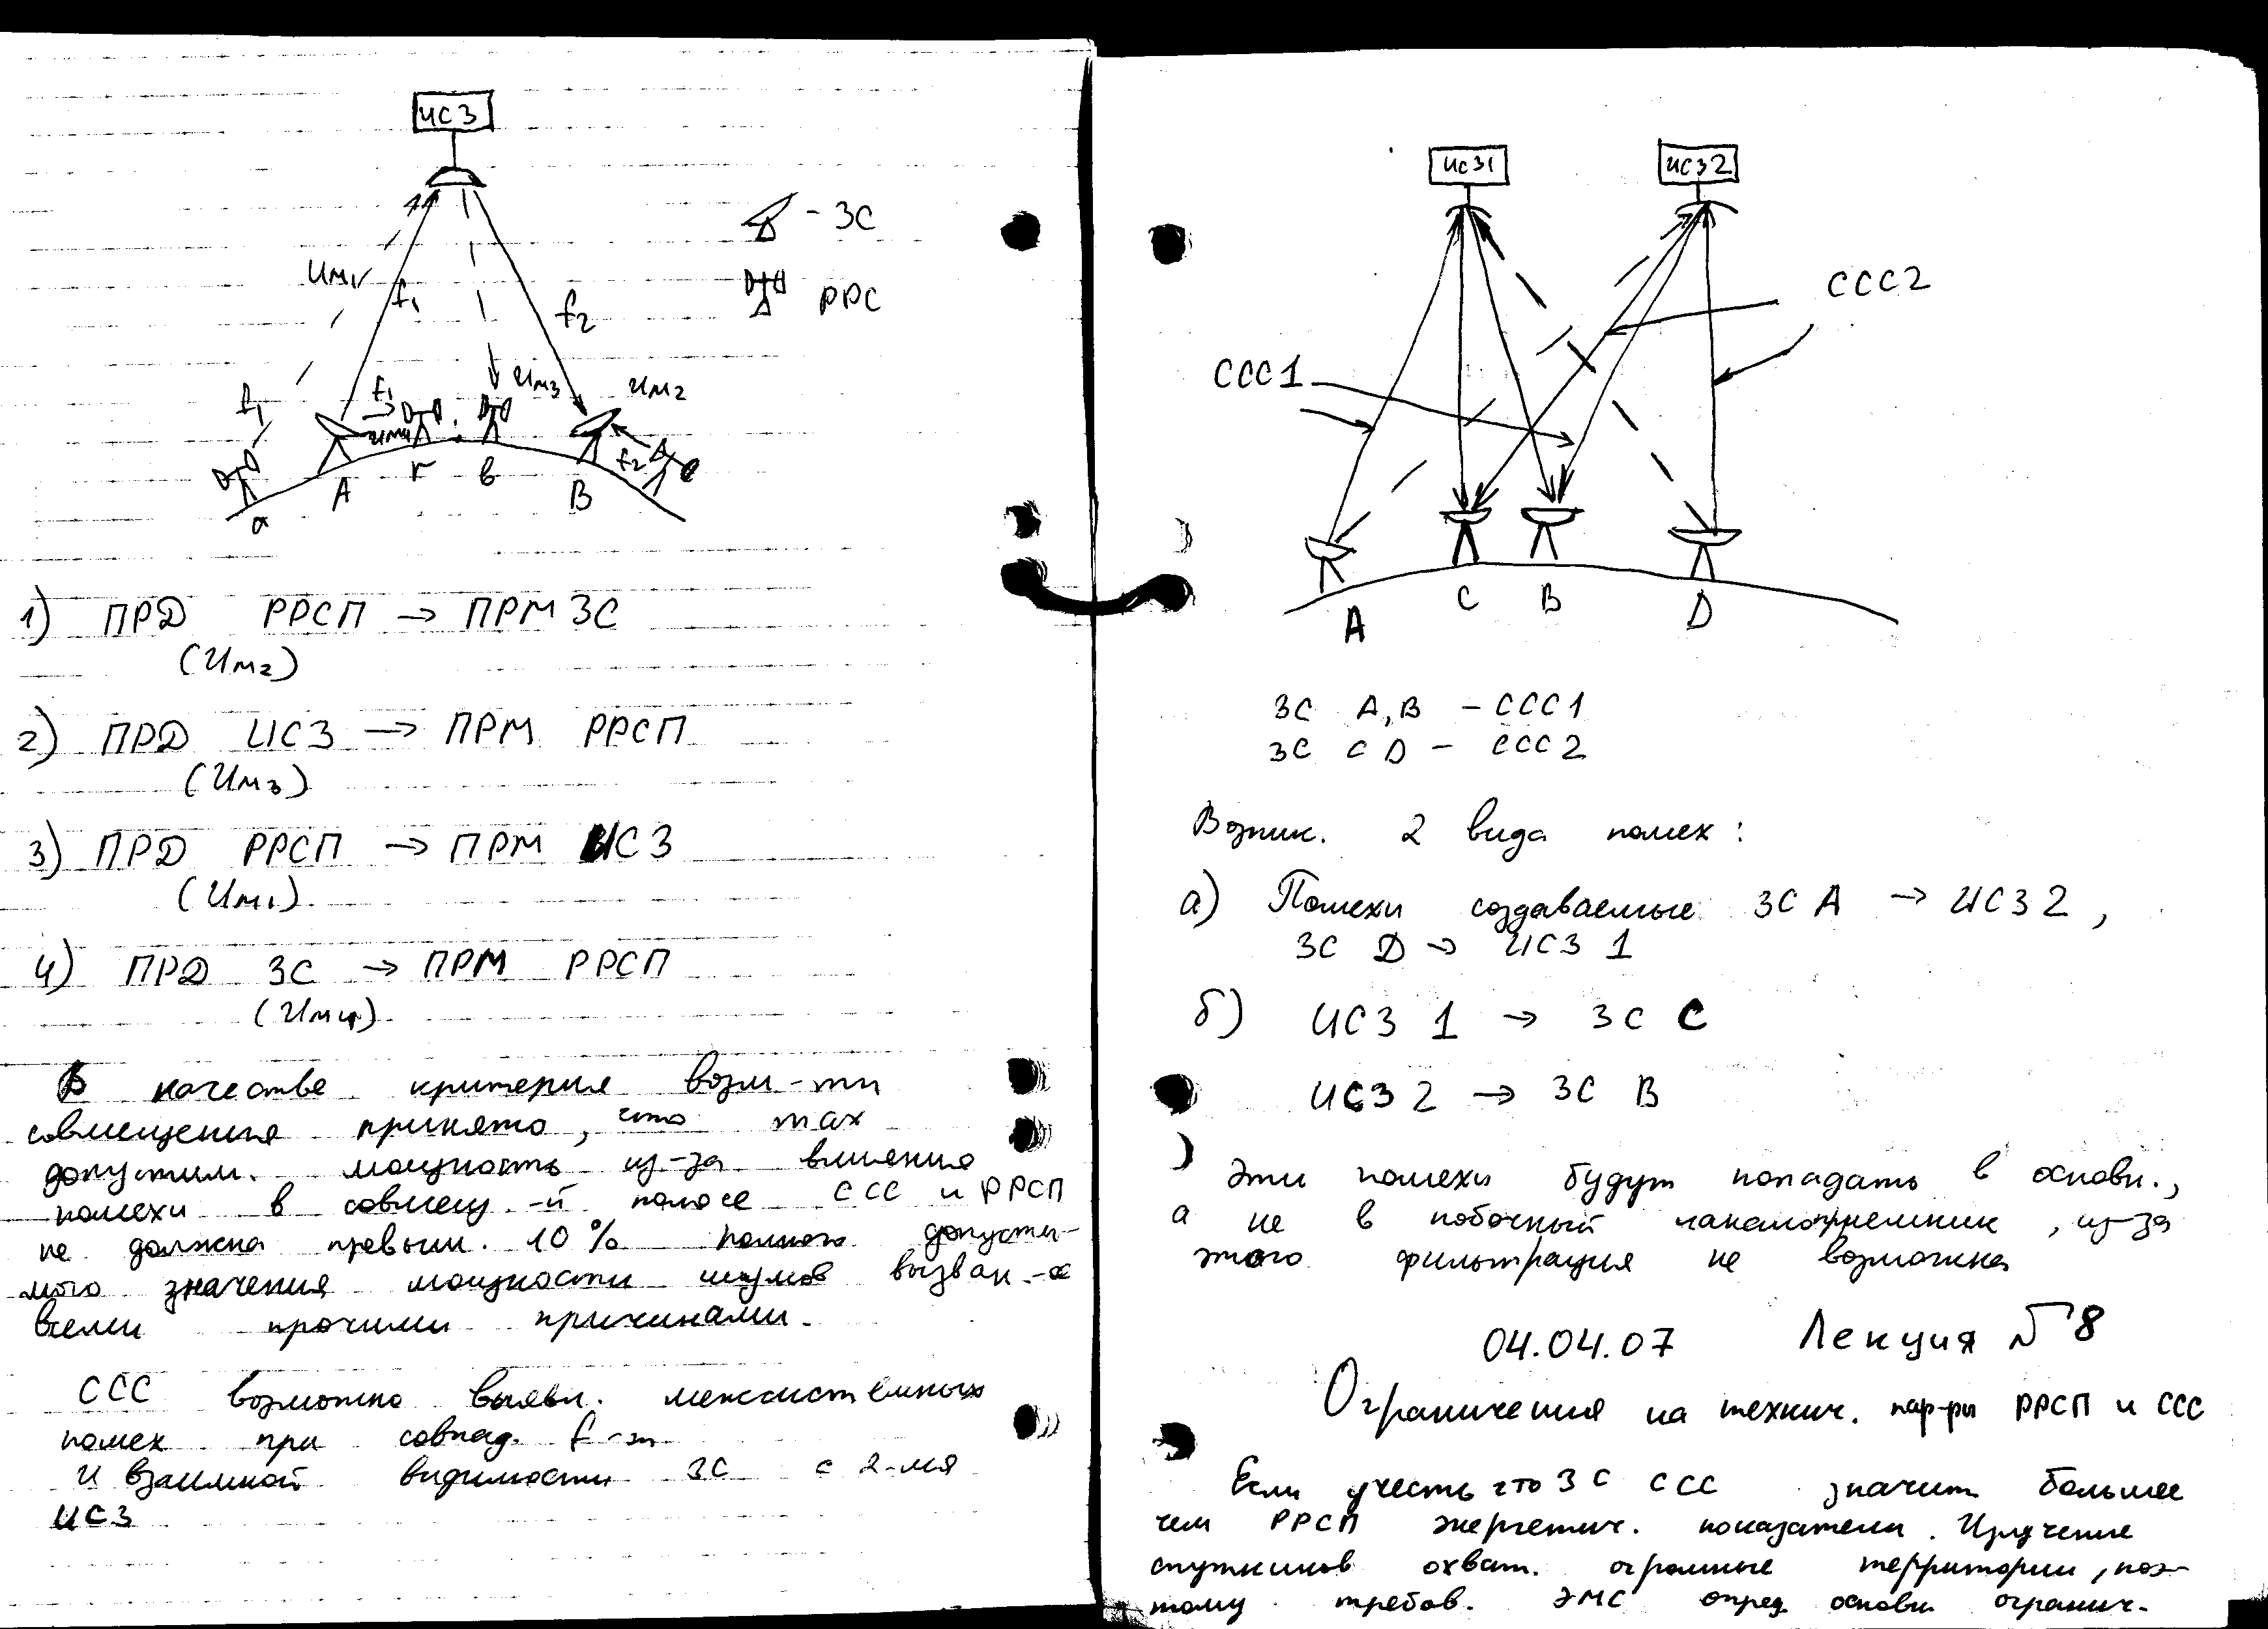 ИСЗ
Uм1
f1
f2
- ЗС
РРС
f1
f1
Uм4
Uм3
Uм2
f2
а
А
г
в
В
1) ПРД РРСП → ПРМ ЗС
(Uм2)
2) ПРД ИСЗ → ПРМ РРСП
(Uм3)
3) ПРД РРСП → ПРМ ИСЗ
(Uм1)
4) ПРД ЗС → ПРМ РРСП
(Uм4)
В качестве критерия возм-ти
совмещения принято, что max
допустим. мощность из-за влияния
помехи в совмещ-й полосе ССС и РРСП
не должна превыш. 10% полного допусти-
мого значения мощности шумов вызван.-х
всеми прочими причинами.
ССС возможно выявл. межсистемных
помех при совпад. f-т
и взаимной видимости ЗС с 2-мя
ИСЗ
ИСЗ1
ИСЗ2
ССС2
ССС1
А
С
В
D
ЗС А, В - ССС1
ЗС С D - ССС2
Возник. 2 вида помех:
а) Помехи создаваемые ЗС А → ИСЗ 2,
ЗС D → ИСЗ 1
б) ИСЗ 1 → ЗС С
ИСЗ 2 → ЗС В
Эти помехи будут попадать в основн.,
а не в побочный , из-за
этого фильтрация не возможна
04.04.07 Лекция №8
Ограничения на технич. пар-ры РРСП и ССС
Если учесть что ЗС ССС значит большее
чем РРСП энергетич. показатели. Излучение
спутников охват. огромные территории, поэ-
тому требов. ЭМС опред. основн. огранич.